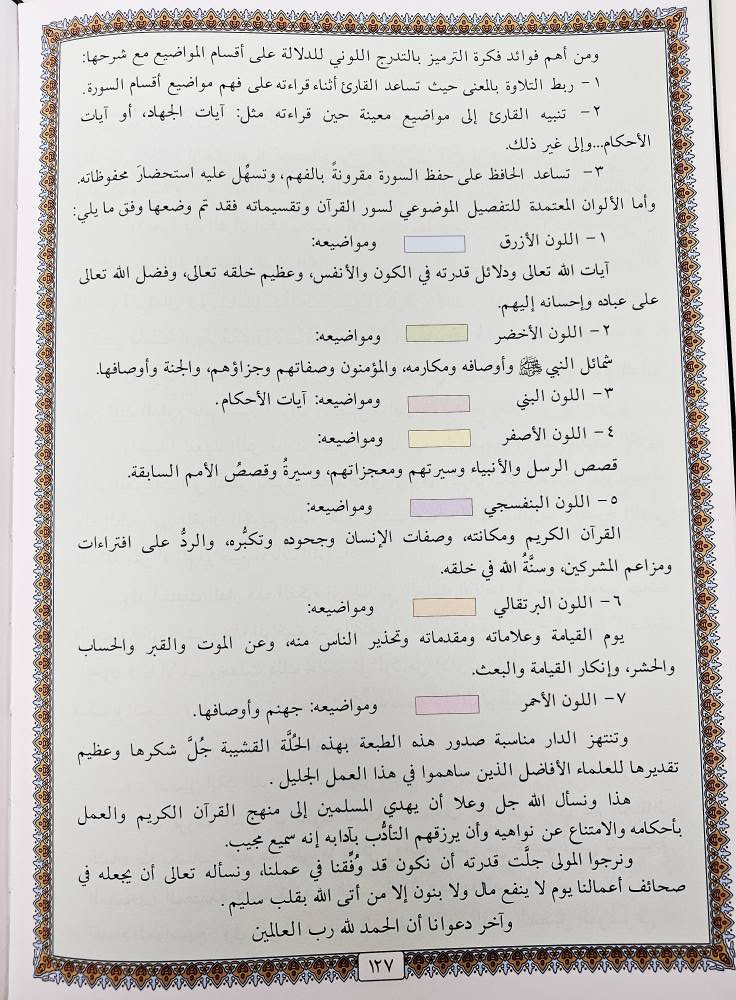 ومن أهم فوائد فكرة الترميز بالتدرج اللوني للدلالة على أقسام المواضيع مع شرحها:
١- ربط التلاوة بالمعنى حيث تساعد القارئ أثناء قراءته على فهم مواضيع أقسام السورة.
٢- تنبيه القارئ إلى مواضيع معينة حين قراءته مثل: آيات الجهاد، أو آيات
الأحكام...وإلى غير ذلك.
٣- تساعد الحافظ على حفظ السورة مقرونةً بالفهم، وتسهِّل عليه استحضارَ محفوظاته.
وأما الألوان المعتمدة للتفصيل الموضوعي لسور القرآن وتقسيماته فقد تم وضعها وفق ما يلي:
١- اللون الأزرق ومواضيعه:
آيات الله تعالى ودلائل قدرته في الكون والأنفس، وعظيم خلقه تعالى، وفضل الله تعالى
على عباده وإحسانه إليهم.
٢- اللون الأخضر ومواضيعه:
شمائل النبي ﷺ وأوصافه ومكارمه، والمؤمنون وصفاتهم وجزاؤهم، والجنة وأوصافها.
٣- اللون البني ومواضيعه: آيات الأحكام.
٤- اللون الأصفر ومواضيعه:
قصص الرسل والأنبياء وسيرتهم ومعجزاتهم، وسيرةُ وقصصُ الأمم السابقة.
٥- اللون البنفسجي ومواضيعه:
القرآن الكريم ومكانته، وصفات الإنسان وجحوده وتكبُّره، والردُّ على افتراءات
ومزاعم المشركين، وسنَّةُ الله في خلقه.
٦- اللون البرتقالي ومواضيعه:
يوم القيامة وعلاماته ومقدماته وتحذير الناس منه، وعن الموت والقبر والحساب
والحشر، وإنكار القيامة والبعث.
٧- اللون الأحمر ومواضيعه: جهنم وأوصافها.
وتنتهز الدار مناسبة صدور هذه الطبعة بهذه الحُلَّة القشيبة جُلَّ شكرها وعظيم
تقديرها للعلماء الأفاضل الذين ساهموا في هذا العمل الجليل.
هذا ونسأل الله جل وعلا أن يهدي المسلمين إلى منهج القرآن الكريم والعمل
بأحكامه والامتناع عن نواهيه وأن يرزقهم التأدُّب بآدابه إنه سميع مجيب.
ونرجوا المولى جلَّت قدرته أن نكون قد وُفِّقنا في عملنا، ونسأله تعالى أن يجعله في
صحائف أعمالنا يوم لا ينفع مال ولا بنون إلا من أتى الله بقلب سليم.
وآخر دعوانا أن الحمد لله رب العالمين
١٢٧